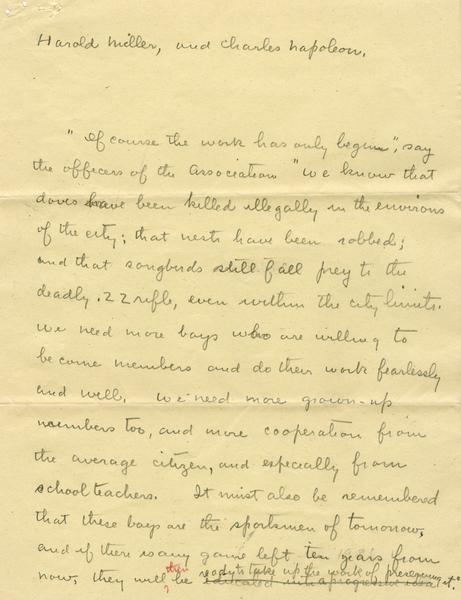 Harold Miller, and Charles Napoleon.
"Of course the work has only begun", say
the officers of the association "we know that
doves have been killed illegally in the environs
of the city; that nests have been robbed;
and that songbirds still fall prey to the
deadly .22 rifle, even within the city limits.
We need more boys who are willing to
become members and do their work fearlessly
and well. We need more grown-up
members too, and more cooperation from
the average citizen, and especially from
school teachers. It must also be remembered
that these boys are the sportsmen of tomorrow,
and if there is any game left ten years from
now, they will then be ready to take up the work of preserving it."